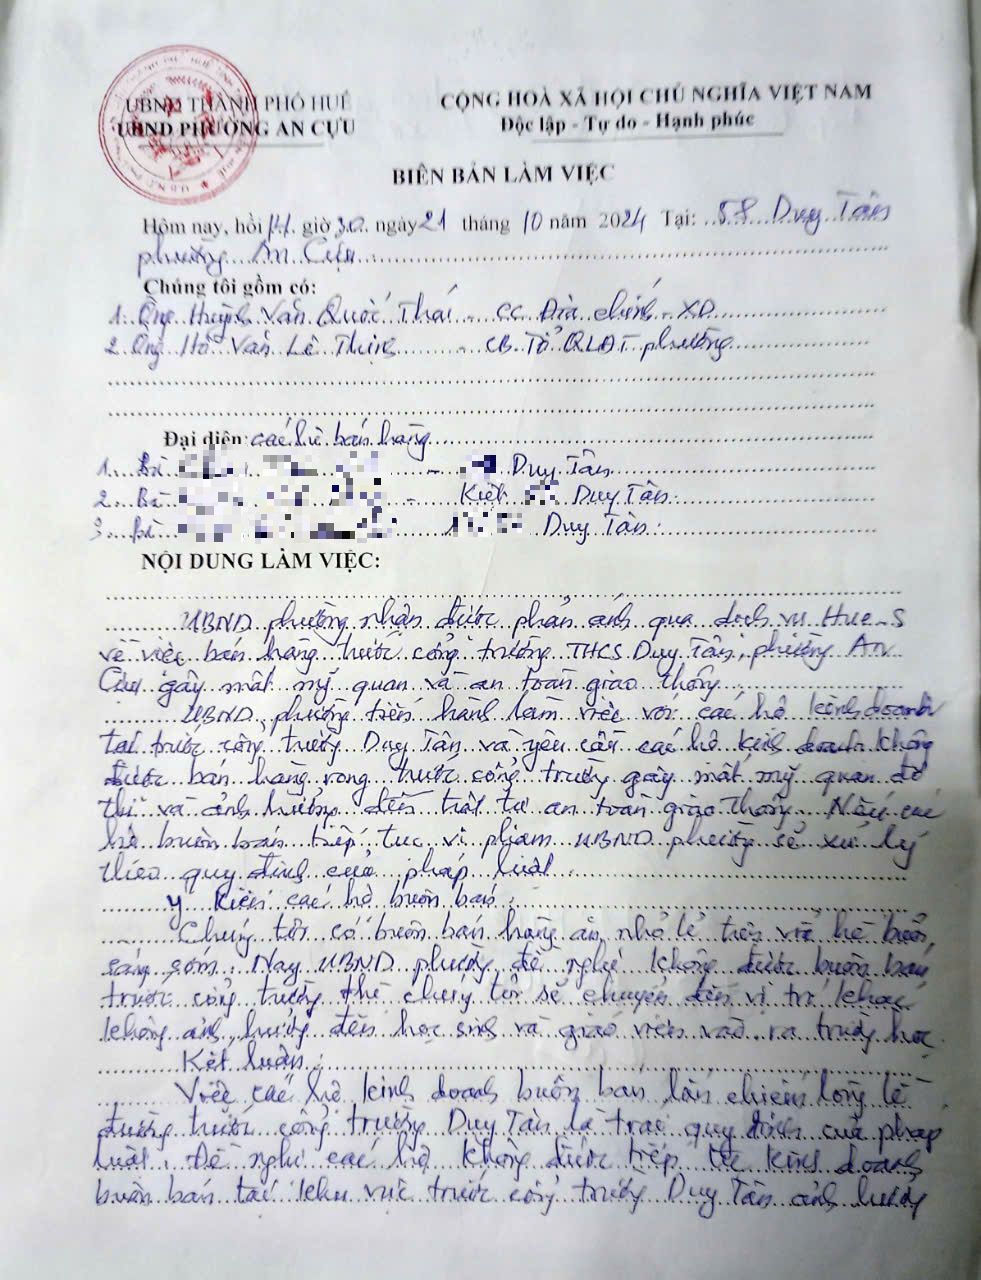 UBND THÀNH PHỐ HUẾ
UBND PHƯỜNG AN CỰU
CỘNG HOÀ XÃ HỘI CHỦ NGHĨA VIỆT NAM
Độc lập - Tự do - Hạnh phúc
BIÊN BẢN LÀM VIỆC
Hôm nay, hồi 14 giờ 30 ngày 21 tháng 10 năm 2024 Tại: 58 Duy Tân
phường An Cựu
Chúng tôi gồm có:
1. Ông Huỳnh Văn Quốc Thái - CC Địa chính - XD
2. Ông Hồ Văn Lê Thinh - CB Tổ QLĐT phường
Đại diện: các hộ bán hàng
1. Bà - Duy Tân
2. Bà - Kiệt Duy Tân.
3. Bà Duy Tân.
NỘI DUNG LÀM VIỆC:
UBND phường nhận được phản ánh qua dịch vụ Hue-S
về việc bán hàng trước cổng trường THCS Duy Tân, phường An
Cựu gây mất mỹ quan và an toàn giao thông.
UBND phường tiến hành làm việc với các hộ kinh doanh
tại trước cổng trường Duy Tân và yêu cầu các hộ kinh doanh không
được bán hàng rong trước cổng trường gây mất mỹ quan đô
thị và ảnh hưởng đến trật tự an toàn giao thông. Nếu các
hộ buôn bán tiếp tục vi phạm UBND phường sẽ xử lý
theo quy định của pháp luật.
Ý kiến các hộ buôn bán:
Chúng tôi có buôn bán hàng ăn nhỏ lẻ trên vỉa hè buổi
sáng sớm. Nay UBND phường đề nghị không được buôn bán
trước cổng trường thì chúng tôi sẽ chuyển đến vị trí khác
không ảnh hưởng đến học sinh và giáo viên vào ra trường học.
Kết luận:
Việc các hộ kinh doanh buôn bán lấn chiếm lòng lề
đường trước cổng trường Duy Tân là trái quy định của pháp
luật. Đề nghị các hộ không được tiếp tục kinh doanh
buôn bán tại khu vực trước cổng trường Duy Tân ảnh hưởng